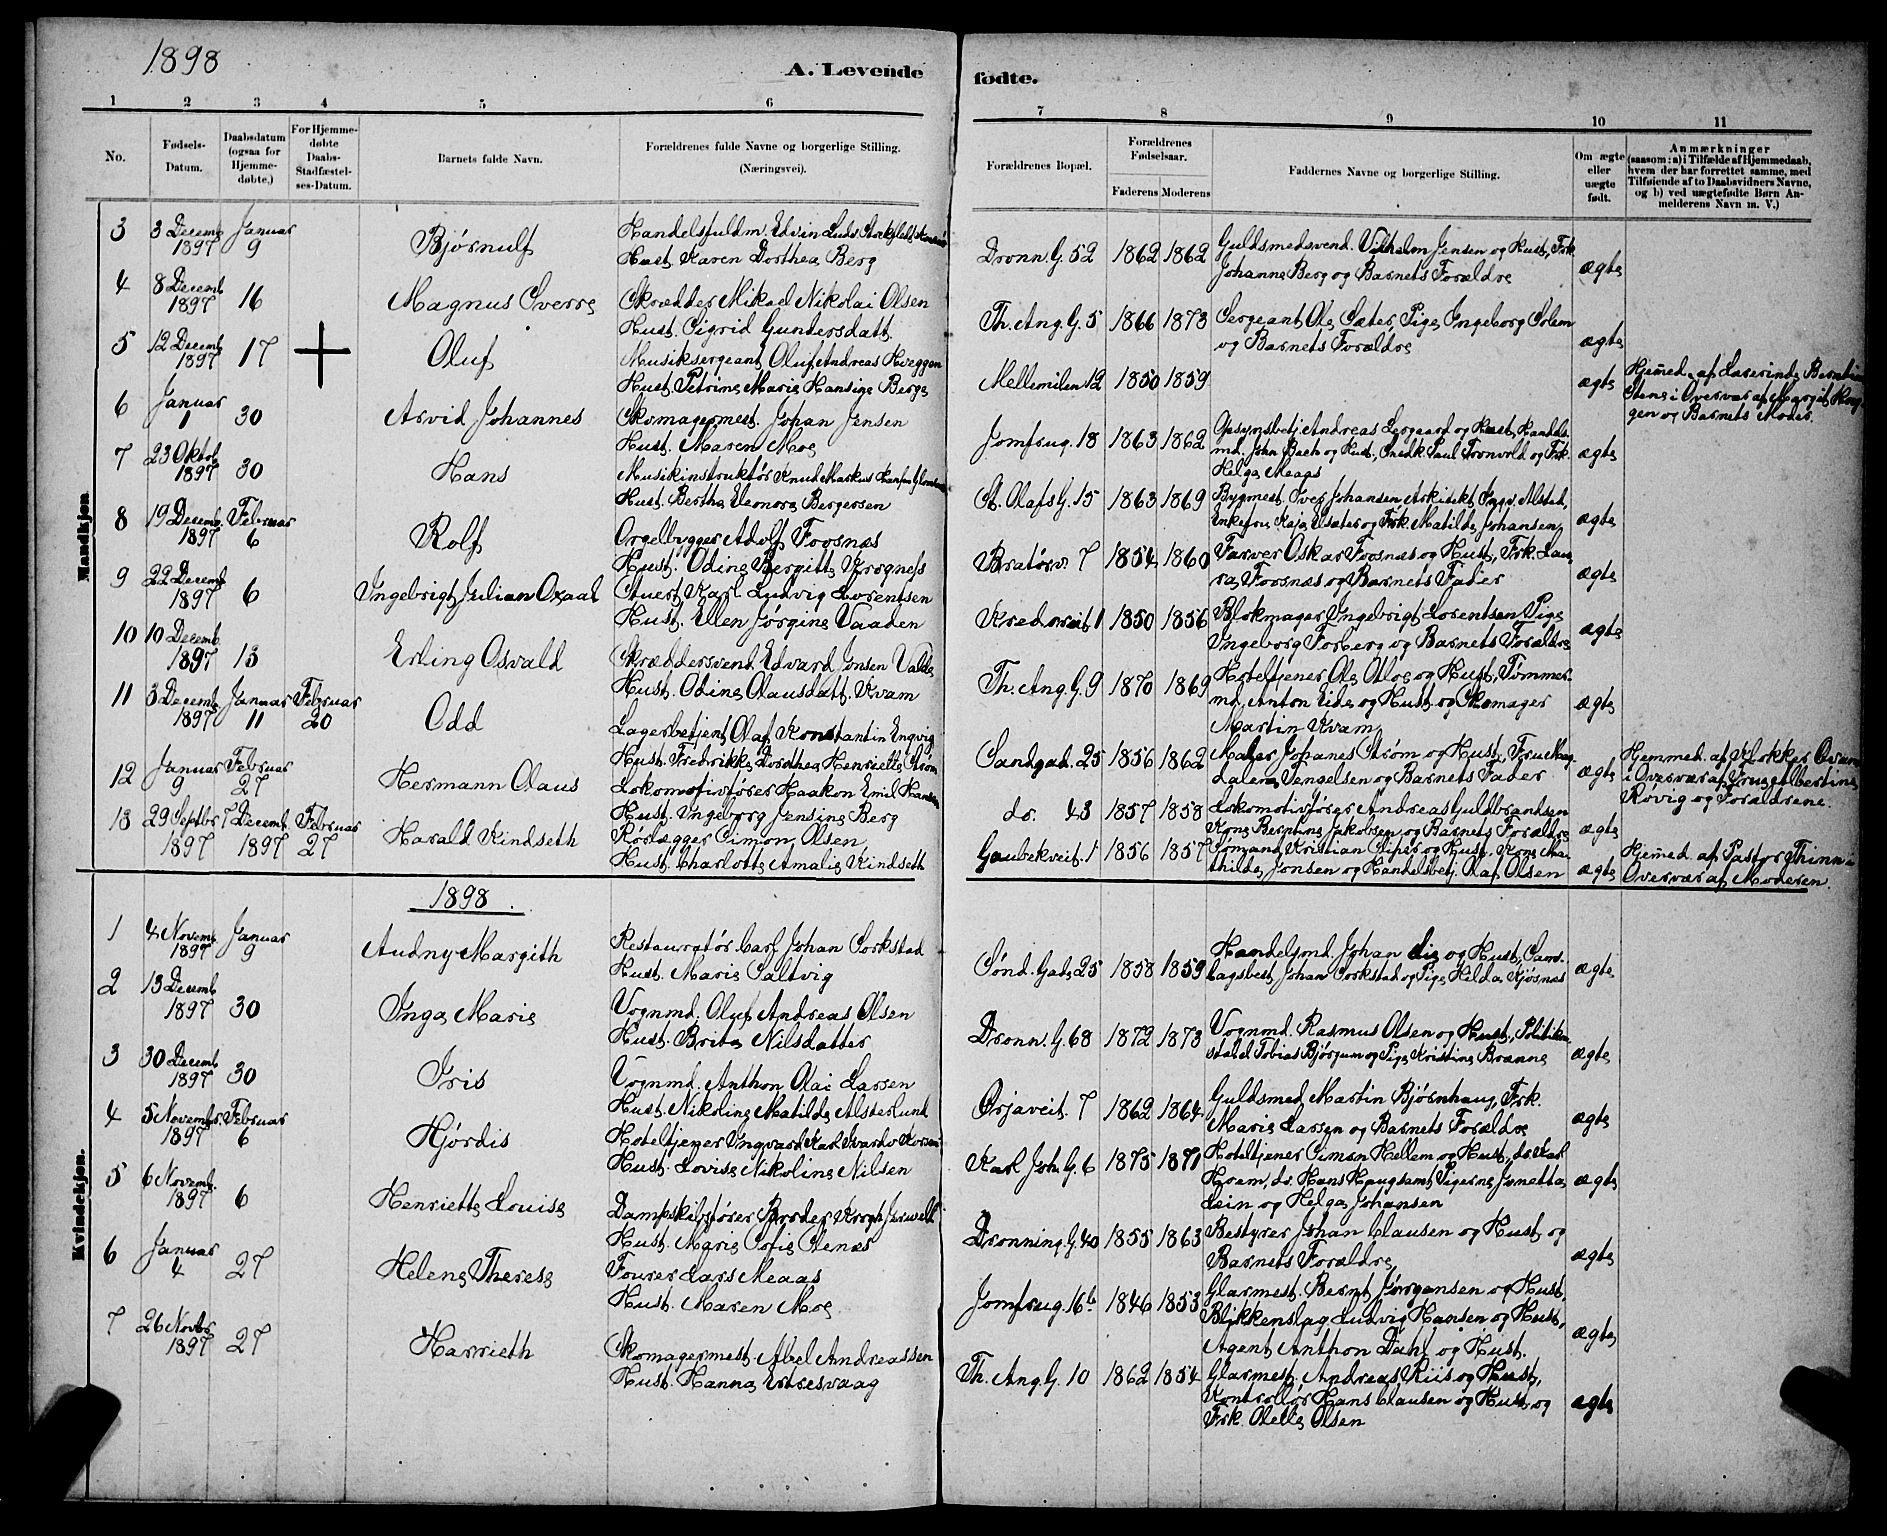 1898
A. Levende fødte.
1 2 3 4 5 6 7 8 9 10 11
No.
Fødsels-Datum.
Daabsdatum (ogsaa for Hjemme-døbte.)
For Hjemme-døbte Daabs-Stadfæstel-ses-Datum.
Barnets fulde Navn.
Forældrenes fulde Navne og borgerlige Stilling. (Næringsvei).
Forældrenes Bopæl.
Forældrenes Fødselsaar.
Faderens Moderens
Faddernes Navne og borgerlige Stilling.
Om ægte eller uægte født.
Anmærkninger (saasom: a) i Tilfælde af Hjemmedaab, hvem der har forrettet samme, med Tilføiende af to Daabsvidners Navne, og b) ved uægtefødte Børn An-melderens Navn m. V.)
Mandkjøn.
3 3 Decemb 1897 Januar 9 Bjørnulf
Handelsfuldm. Edvin Ludv.
Hust. Karen Dorthea Berg
Dronn. G. 52 1862 1862
Guldsmedsvend. Vilhelm Jensen og Hust, Frk
Johanne Berg og Barnets Forældre
ægte
4 8 Decemb 1897 16 Magnus Sverre
Skrædder Mikael Nikolai Olsen
Hust. Sigrid Gundersdatt.
Th. Ang. G. 5 1866 1873
Sergeant Ole Sæter, Pige Ingeborg Solem
og Barnets Forældre
ægte
5 12 Decemb 1897 17 Oluf
Musiksergeant Oluf Andreas Hveggen
Hust. Petrine Marie Hansine Berge
Mellemilen 12 1850 1859
ægte
Hjemmed. af Lærerinde
Stene i Overvær af Margit
gen og Barnets Moder.
6 Januar 1 30 Arvid Johannes
Skomagermest. Johan Jensen
Hust. Maren Moe
Jomfrug. 18 1863 1862
Opsynsbetj. Andreas Lergaard og Hust, Handels
md. John Bach og Hust, Snedk Paul Tronvold og Frk.
Helga Meaas
ægte
7 23 Oktob 1897 30 Hans
Musikinstruktør Knud Markus Hansen
Hust. Bertha Eleonora Bergersen
St. Olafs G. 15 1863 1869
Bygmest. Iver Johansen Arkitekt Ingv. Alstad,
Enkefru Kaja og Frk. Matilde Johansen
ægte
8 19 Decemb. 1897 Februar 6 Rolf
Orgelbygger Adolf Fosnæs
Hust. Odine Bergitte Krogness
Bratørv. 7 1854 1860
Farver Oskar Fosnæs og Hust, Frk. Lau
ra Fosnæs og Barnets Fader
ægte
9 22 Decemb 1897 6 Ingebrigt Julian Oxaal
Stuert Karl Ludvig Lorentsen
Hust. Ellen Jørgine Vaaden
Kredsveit 1 1850 1856
Blokmager Ingebrigt Lorentsen, Pige
Ingeborg Forberg og Barnets Forældre
ægte
10 10 Decemb 1897 13 Erling Osvald
Skræddersvend Edvard Jonsen Valde
Hust. Odine Olausdatt. Kvam
Th. Ang. G. 9 1870 1869
Hoteltjener Ole Moe og Hust, Tømmer
md. Anton Eide og Hust. og Skomager
Martin Kvam
ægte
11 3 Decemb 1897 Januar 11 Februar 20 Odd
Lagerbetjent Olaf Konstantin Engvig
Hust. Fredrikke Dorothea Henriette Strøm
Sandgad. 25 1856 1862
Maler Johanes Strøm og Hust, Frue Mag
dalene og Barnets Fader
ægte
Hjemmed. af Klokker
i Overvær af Frue Albertine
Røvig og Forældrene.
12 Januar 9 Februar 27 Hermann Olaus
Lokomotivfører Haakon Emil Hansen
Hust. Ingeborg Jensine Berg
do. 43 1857 1858
Lokomotivfører Andreas Guldbrandsen
Kone Berntine Jakobsen og Barnets Forældre
ægte
13 29 Septbr 1897 7 Decemb 1897 Februar 27 Harald Kindseth
Rørlægger Simon Olsen
Hust. Charlotte Amalie Kindseth
Gaubekveit. 1 1856 1857
Sømand Kristian og Hust. Kone Ma
thilde Jonsen og Handelsbetj. Olaf Olsen
ægte
Hjemmed. af Pastor Thinn i
Overvær af Moderen.
1898.
Kvindekjøn.
1 4 Novemb. 1897 Januar 9 Audny Margith
Restauratør Carl Johan Sorkstad
Hust. Marie Saltvig
Sønd. Gade 25 1858 1859
Handelsmd. Johan Lie og Hust, Sam-
lagsbest. Johan Sorkstad og Pige Hilda Kjøsnæs
ægte
2 13 Decemb 1897 30 Inga Marie
Vognmd. Oluf Andreas Olsen
Hust. Brita Nilsdatter
Dronn. G. 68 1872 1873
Vognmd. Rasmus Olsen og Hust, Politikon
stabel Tobias Bjørgum og Pige Kristine Brænne
ægte
3 30 Decemb 1897 30 Iris
Vognmd. Anthon Olai Larsen
Hust. Nikoline Matilde Alsterlund
Ørjaveit. 7 1862 1864
Guldsmed Martin Bjørnhaug, Frk.
Marie Larsen og Barnets Forældre
ægte
4 5 Novembr. 1897 Februar 6 Hjørdis
Hoteltjener Ingvard Karl
Hust. Lovise Nikoline Nilsen
Karl Joh. G. 6 1875 1871
Hoteltjener Simon Hellem og Hust, do Karl
Hoem, do. Hans Haugtamt Pigerne Jonetta
Lein og Helga Johansen
ægte
5 6 Novemb. 1897 6 Henriette Louise
Dampskibsfører Broder Krogh
Hust. Marie Sofie Stenæs
Dronning. G. 40 1855 1863
Bestyrer Johan Clausen og Hust, og
Barnets Forældre
ægte
6 Januar 4 27 Helene Therese
Fourer Lars Meaas
Hust. Maren Moe
Jomfrug. 16b 1846 1853
Glarmest. Bernt Jørgensen og Hust,
Blikkenslag. Ludvig Hansen og Hust,
Agent Anthon Dahl og Hust.
ægte
7 26 Novbr 1897 27 Harrieth
Skomagermest. Abel Andreassen
Hust. Hanna Ertresvaag
Th. Ang. G. 10 1862 1854
Glarmest. Andreas Riis og Hust,
Kontrollør Hans Clausen og Hust, og
Frk. Olette Olsen
ægte